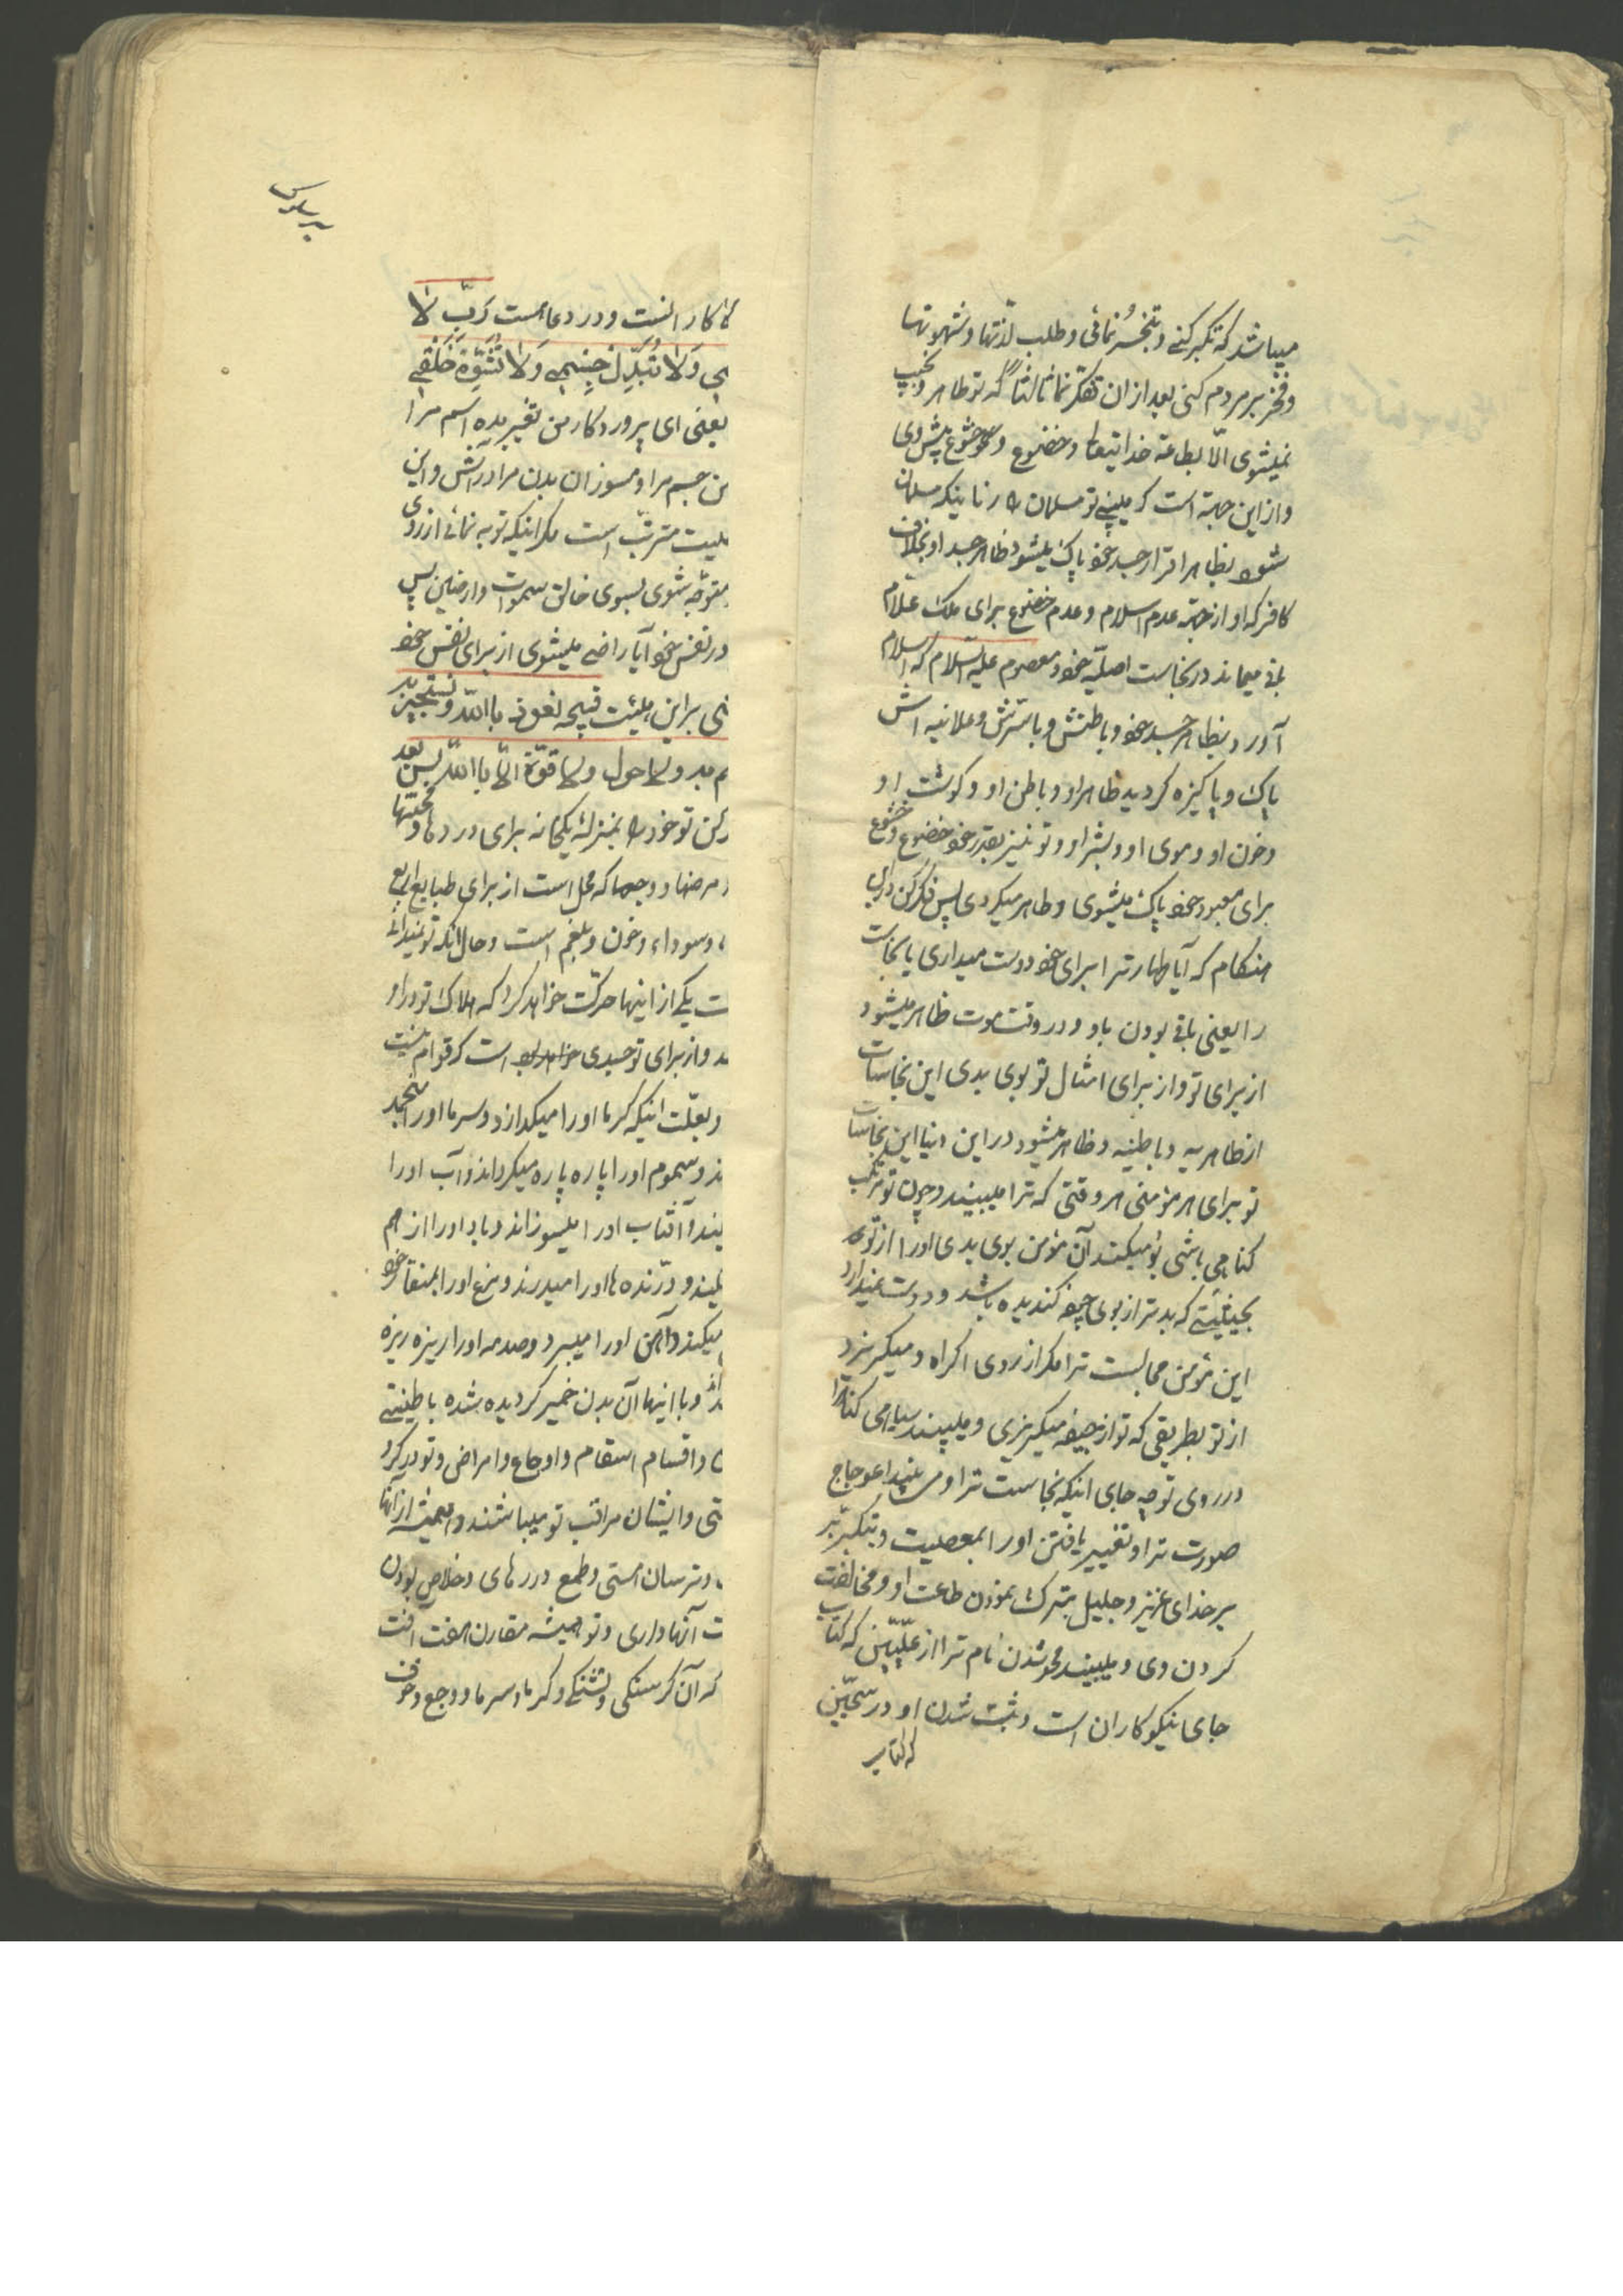 میباشد که تکبر کنی و تبختر نمائی و طلب لذتها و شهوتها
و فخر بر مردم کنی بعد از ان تفکر نما ثالثاً که تو طاهر و نجیب
نمیشوی الّا بطاعة خدایتعالی و خضوع و خشوع پیش وی
و از این جهة است که میبینی تو مسلمان را زمانیکه مسلمان
شود بظاهر اقرار جسد خود پاک میشود ظاهر جسد او بخلاف
کافر که او از جهة عدم اسلام و عدم خضوع برای ملک علّام
باقی میماند در نجاست اصلیّه خود و معصوم علیه السّلام که اسلام
آورد بظاهر جسد خود و باطنش و باسرّش و علانیه اش
پاک و پاکیزه کردید ظاهر او و باطن او و کوشت او
و خون او و موی او و بشر او و تو نیز بقدر خود خضوع و خشوع
برای معبود خود پاک میشوی و طاهر میکردی پس فکر کن در این
هنکام که آیا طهارت را برای خود دوست میداری یا نجاست
را یعنی باقی بودن باو و در وقت موت ظاهر میشود
از برای تو و از برای امثال تو بوی بدی این نجاسات
از ظاهریه و باطنیه و ظاهر میشود در این دنیا این نجاسات
تو برای هر مؤمنی هر وقتی که ترا میبیند و چون تو مرتکب
کناهی باشی بو میکند آن مؤمن بوی بدی او را از تو
بحیثیتی که بدتر از بوی جیفه کندیده باشد و دوست نمیدارد
این مؤمن مجالست ترا مکر از روی اکراه و میکریزد
از تو بطریقی که تو از جیفه میکریزی و میبیند سیاهی کناه را
در روی تو چه جای اینکه نجاست ترا و می بیند اعوجاج
صورت ترا و تغییر یافتن او را بمعصیت و تکبر
بر خدای عزیز و جلیل بترک نمودن طاعت او و مخالفت
کردن وی و میبیند محو شدن نام ترا از علّیّین که کتاب
جای نیکوکاران است و ثبت شدن او در سجّین
که کتاب
کارانست و در دعا هست رَبِّ لا
وَلا تُبَدِّل جِسْمِی وَلا تُشَوِّه خَلْقِی
یعنی ای پروردکار من تغییر مده اسم مرا
جسم مرا و مسوزان بدن مرا در آتش و این
مترتّب است مکر اینکه توبه نمائی از روی
متوجّه شوی بسوی خالق سموات و ارضین پس
در نفس خود آیا راضی میشوی از برای نفس خود
بر این هیئت قبیحه نعوذ باللّه و نستجیر
ولا حول ولا قوّة الّا باللّه پس بعد
کن تو خود را بمنزلهٔ یکخانه برای دردها و محنتها
مرضها و وجعها که محل است از برای طبایع اربع
و سوداء و خون و بلغم است و حال انکه تو نمیدانی
یکی از اینها حرکت خواهد کرد که هلاک تو در او
و از برای تو جسدی است که قوام نیست
و بعلّت اینکه کرما او را میکدازد و سرما او را منجمد
و سموم او را پاره پاره میکرداند و آب او را
و آفتاب او را میسوزاند و باد او را از هم
و درّنده ها او را میدرند و مرغ او را بمنقار خود
میکند و آهن او را میبرد و صدمه او را ریزه ریزه
و با اینها آن بدن خمیر کردیده شده باطینتی
و اقسام اسقام و اوجاع و امراض و تو در کرو
و ایشان مراقب تو میباشند و همیشه از آنها
و ترسان هستی و طمع و خلاص بودن
آنها داری و تو همیشه مقارن هفت آفت
که آن کرسنکی و تشنکی و کرما و سرما و وجع و خوف